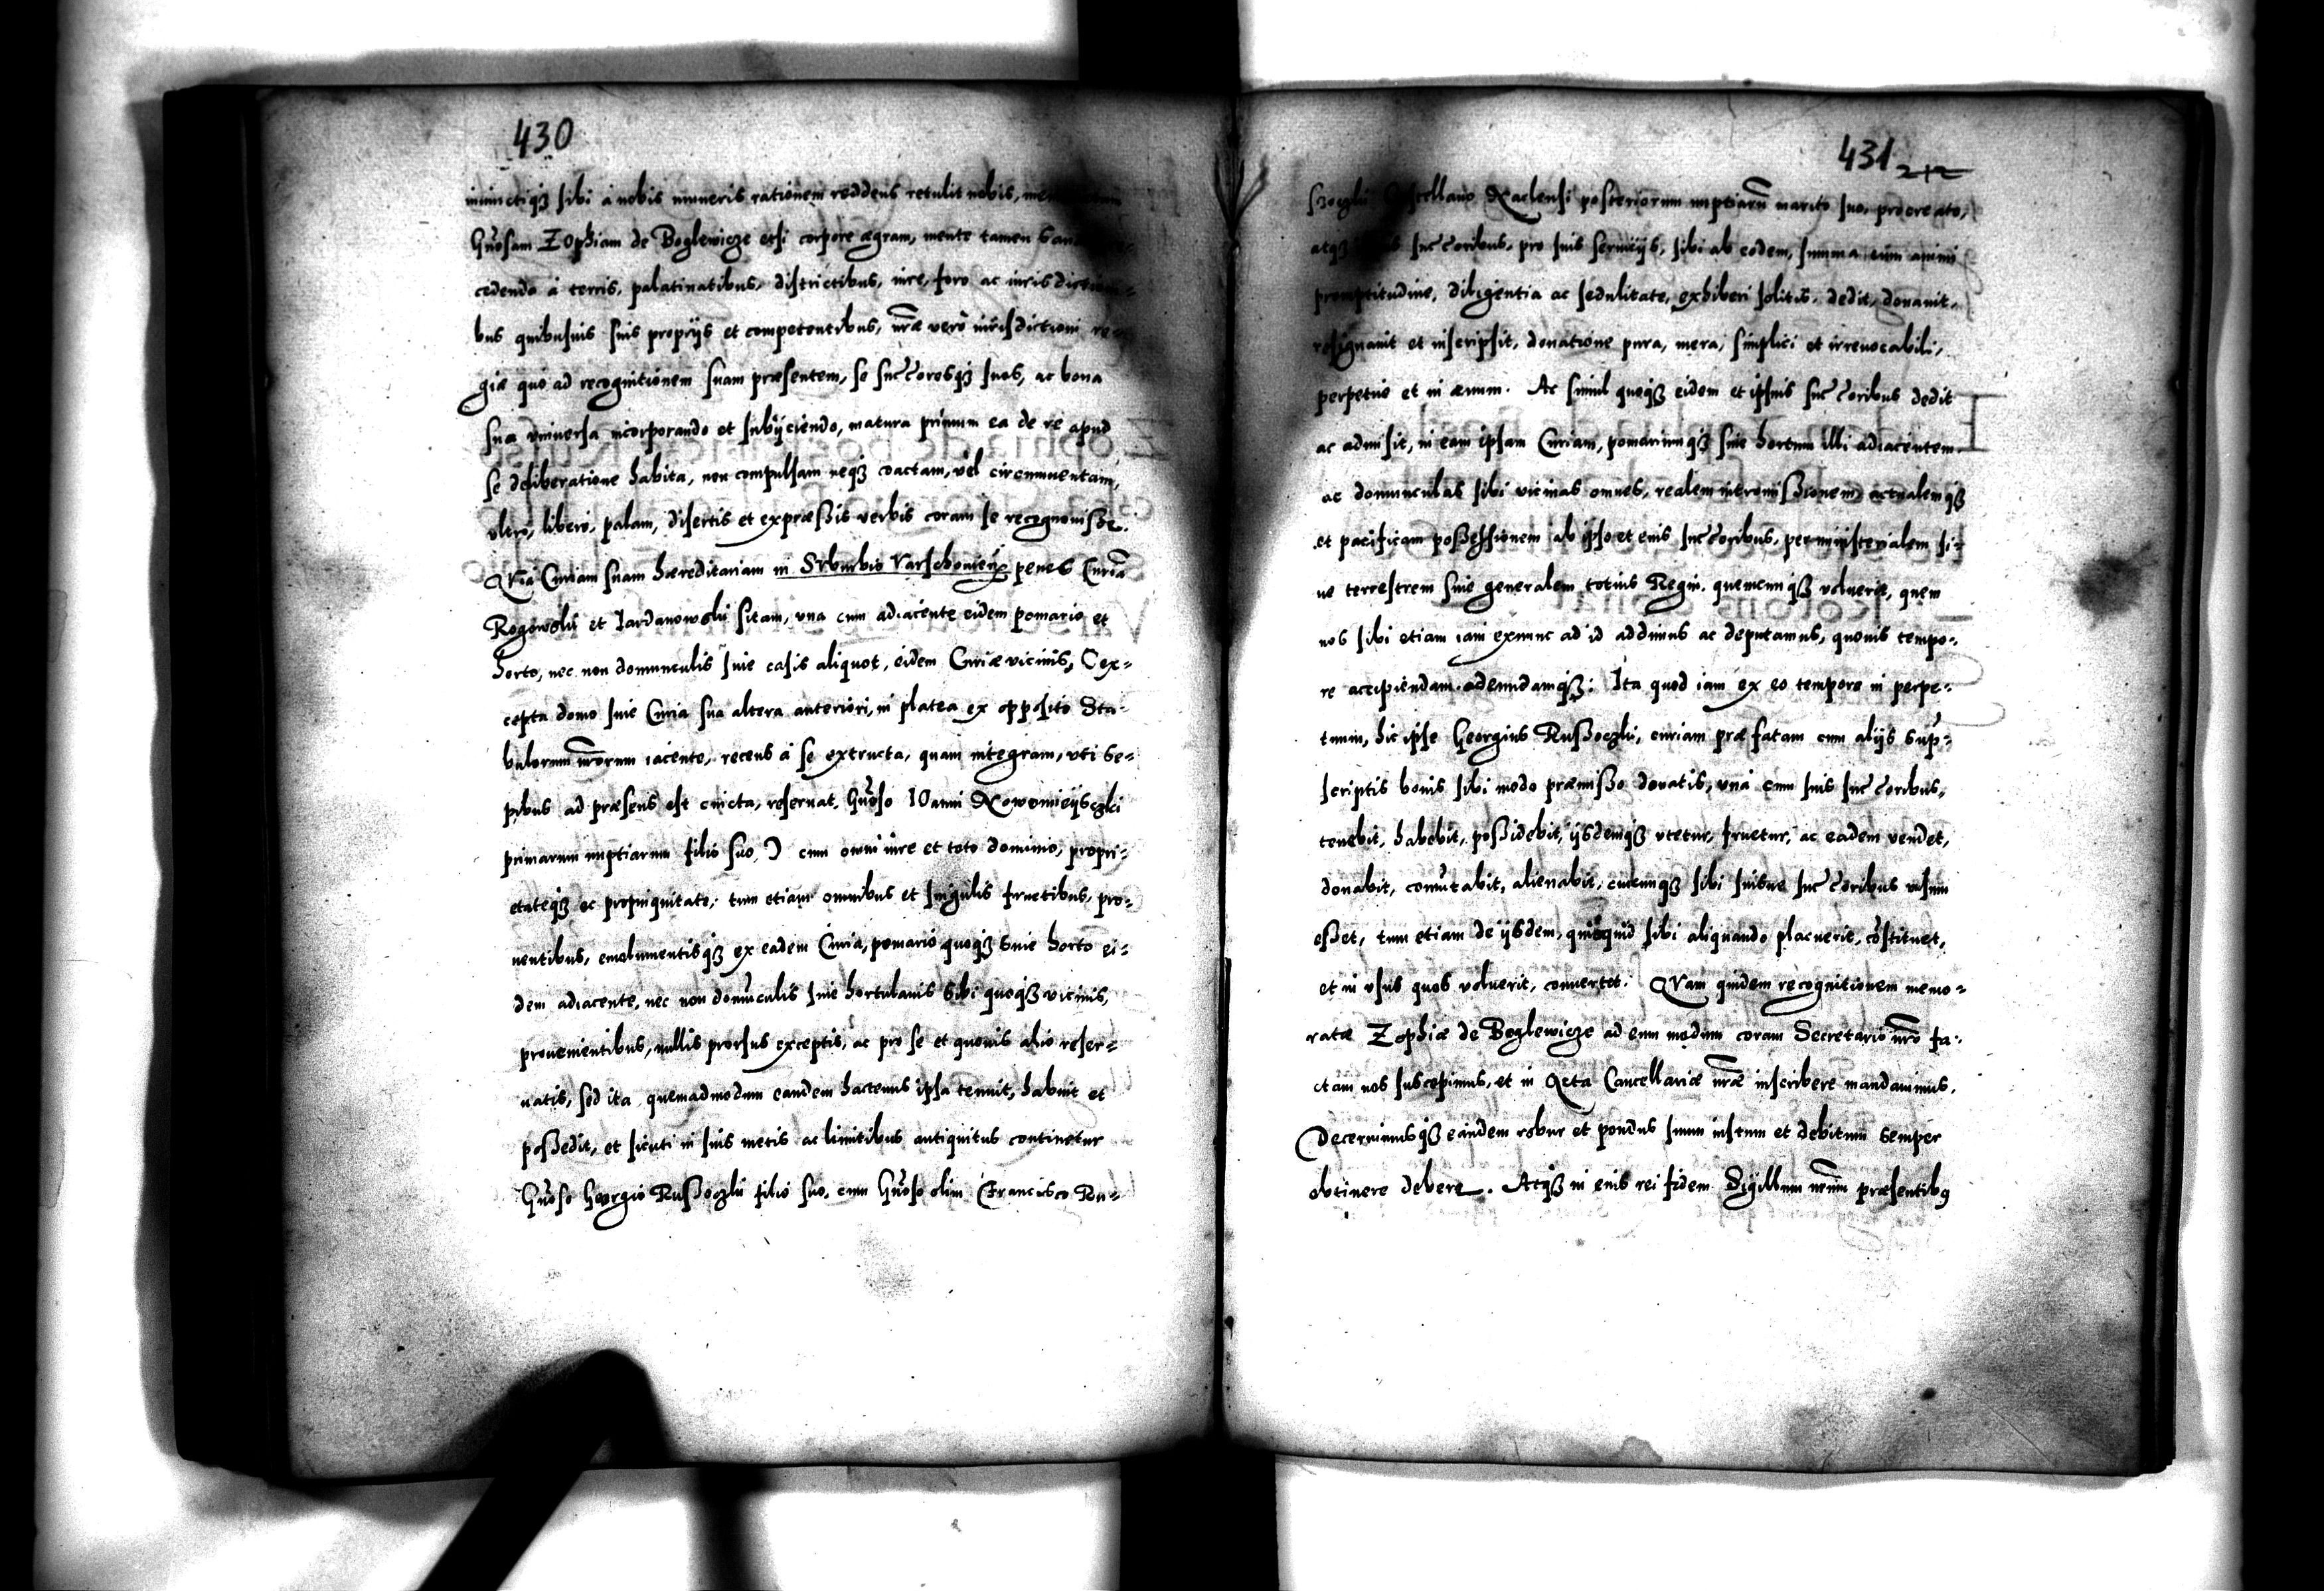 430
iniunctiqȝ sibi à nobis muneris rationem reddens retulit nobis,
Gñosam Zophiam de Boglewicze etsi corpore ægram, mente tamen
cedendo à terris, palatinatibus, districtibus, iure, foro ac iurisdiction=
bus quibusuis suis proprijs et competentibus, nr̃æ verò iurisdictioni re=
giæ quo ad recognitionem suam præsentem, se succ̃oresqȝ suos, ac bona
sua vniuersa incorporando et subijciendo, matura primum ea de re apud
se deliberatione habita, non compulsam neqȝ coactam, vel circumuentam,
vltrò, liberò, palam, disertis et expræßis verbis coram se recognouiße.
Quia Curiam suam hæreditariam in Suburbio Varschouien̄ penes Curiã
Rogowski et Jardanowski sitam, vna cum adiacente eidem pomario et
horto, nec non domunculis siue casis aliquot, eidem Curiæ vicinis, (ex=
cepta domo siue Curia sua altera anteriori, in platea ex opposito Sta=
bulorum nr̃orum iacente, recens à se extructa, quam integram, vti se=
pibus ad præsens est cincta, reseruat, Gñoso Ioanni Nowomieysczki
primarum nuptiarum filio suo,) cum omni iure et toto dominio, propri=
etateqȝ ac propinquitate, tum etiam omnibus et singulis fructibus, pro=
uentibus, emolumentisqȝ ex eadem Curia, pomario quoqȝ siue horto ei=
dem adiacente, nec non domũculis siue hortulanis sibi quoqȝ vicinis,
prouenientibus, nullis prorsus exceptis, ac pro se et quouis alio reser=
uatis, sed ita quemadmodum eandem hactenus ipsa tenuit, habuit et
poßedit, et sicuti in suis metis ac limitibus antiquitus continetur
Gñoso Georgio Rußoczki filio suo, cum Gñoso olim Francisco Ru=
431 212
ßoczki Castellano Naclensi posteriorum nuptiarũ marito suo, procreato,
atqȝ succ̃oribus, pro suis seruicijs, sibi ab eodem, summa cum animi
promptitudine, diligentia ac sedulitate, exhiberi solitis, dedit, donauit,
resignauit et inscripsit, donatione pura, mera, simplici et irreuocabili,
perpetuo et in æuum. Ac simul quoqȝ eidem et ipsius succ̃oribus dedit
ac admisit, in eam ipsam Curiam, pomariumqȝ siue hortum illi adiacentem
ac domunculas sibi vicinas omnes, realem intromißionem, actualemqȝ
et pacificam poßeßionem ab ipso et eius succ̃oribus, per ministerialem si=
ue terrestrem siue generalem totius Regni, quemcunqȝ voluerit, quem
nos sibi etiam iam exnunc ad id addimus ac deputamus, quouis tempo=
re accipiendam adeundamqȝ: Ita quod iam ex eo tempore in perpe=
tuum, hic ipse Georgius Rußoczki, curiam præfatam cum alijs sup̃=
scriptis bonis sibi modo præmißo donatis, vnà cum suis succ̃oribus,
tenebit, habebit, poßidebit, ijsdemqȝ vtetur, fruetur, ac eadem vendet,
donabit, com̃utabit, alienabit, cuicunqȝ sibi suisue succ̃oribus visum
eßet, tum etiam de ijsdem, quicquid sibi aliquando placuerit, cõstituet,
et in vsus quos voluerit, conuertet: Quam quidem recognitionem memo=
ratæ Zophiæ de Boglewicze ad eum modum coram Secretario nr̃o fa=
ctam nos suscepimus, et in Acta Cancellariæ nr̃æ inscribere mandauimus.
Decernimusqȝ eandem robur et pondus suum iustum et debitum semper
obtinere debere. Atqȝ in eius rei fidem Sigillum nr̃um præsentibꝰ